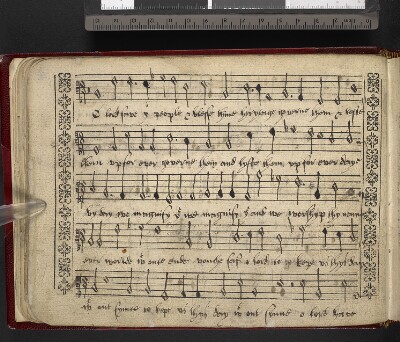 O lord save thy people & blesse thine heritage governe them & lyfte
them up for ever governe them and lyfte them up for ever daye
by day we magnify the we magnify the and we worshyp thy name
ever worlde with out ende vouche safe o lord to kepe us thys day
with out synne to kepe us thys day with out synne o lord have